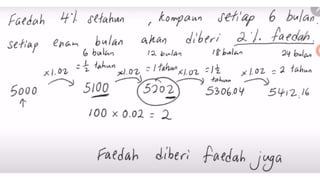 Faedah 4% setahun, kompaun setiap 6 bulan.
setiap enam bulan akan diberi 2% faedah.
6 bulan 12 bulan 18 bulan 24 bulan
×1.02 = 1/2 tahun ×1.02 = 1 tahun ×1.02 = 1 1/2 tahun ×1.02 = 2 tahun
5000 5100 5202 5306.04 5412.16
100 × 0.02 = 2
Faedah diberi faedah juga